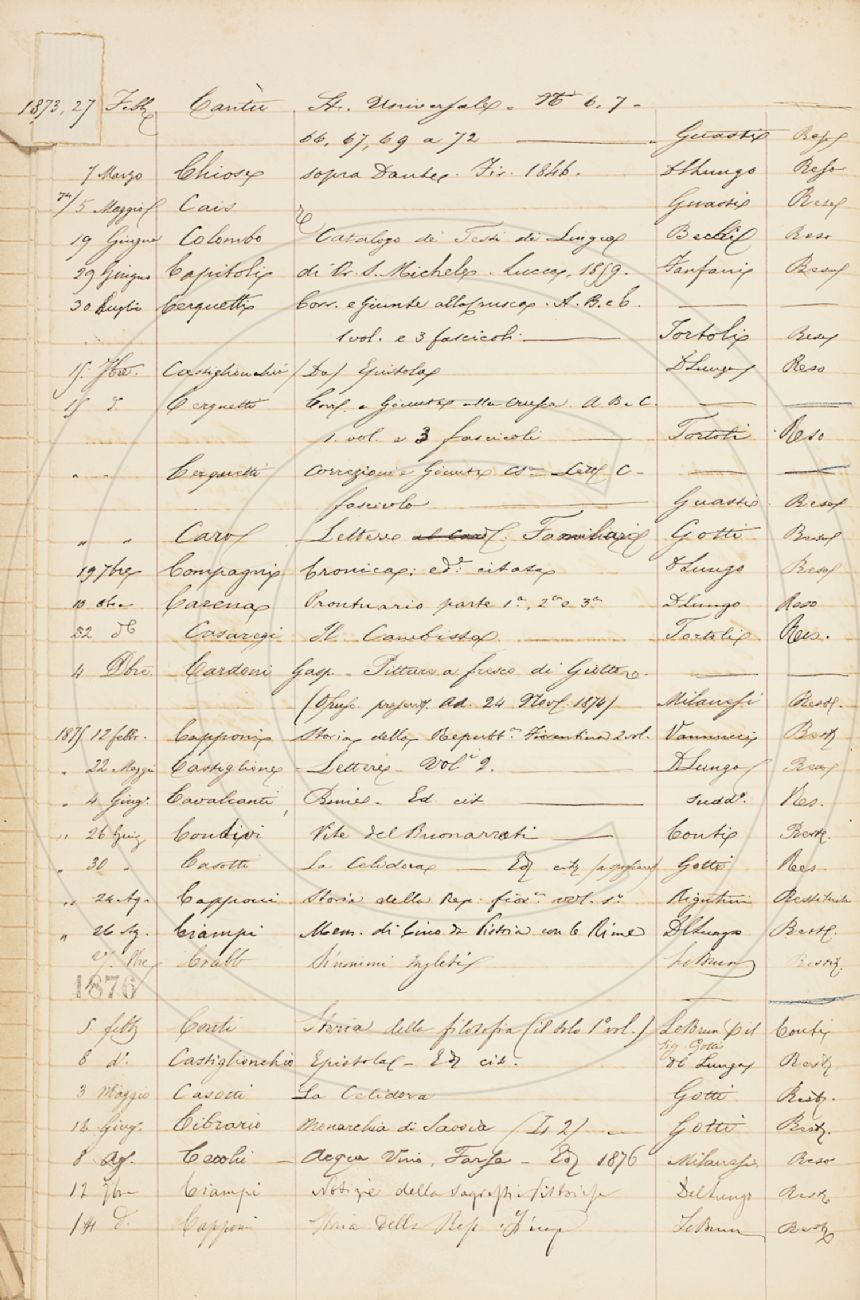 1873, 27 Febb Cantù St. Universale. N.i 6. 7.
66, 67, 69 a 72 Guasti Reso
7 Marzo Chiose sopra Dante. Fir. 1846. DLungo Reso
74/5 Maggio Cais Guasti Reso
19 Giugno Colombo Catalogo di Testi di Lingua Becchi Reso
29 Giugno Capitoli di Or. S. Michele. Lucca, 1859. Fanfani Reso
30 Luglio Cerquetti Corr. e Giunte alla Crusca. A. B. e C.
1 vol. e 3 fascicoli Tortoli Reso
15. 7bre. Castiglionchio (Da) Epistola DLungo Reso
15 d Cerquetti Corr. e Giunte alla Crusca. A. B. e C.
1. vol. e 3 fascicoli Tortoli Reso
" " Cerquetti Correzioni e Giunte Lett. C.
fascicolo Guasti Reso
" " Caro Lettere Familiari Gotti Reso
19 7bre Compagni Cronica; ed.e citata DLungo Reso
10 8bre Carena Prontuario parte 1a, 2a e 3a DLungo Reso
22 do Casaregi Il Cambista Tortoli Res.
4 Dbre. Cardoni Gasp. Pitture a fresco di Giotto
(Opusc. Ad. 24 Nov. 1874) Milanesi Rest.
1875 12 febb. Capponi Storia della Repubb.ca Fiorentina 2 vol. Vannucci Rest.
" 22 Maggio Castiglione Lettere Vol.i 2. DLungo Reso
" 4 Giug.o Cavalcanti, Rime. Ed. cit. sudd.o Res.
" 26 Giug Condivi Vita del Buonarroti Conti Restit.
" 30 " Casotti La Celidora Ed. cit. Gotti Res.
" 24 Ag. Capponi Storia della Rep. fior.na vol. 1o Rigutini Restituita
" 26 Ag. Ciampi Mem. di Cino da Pistoia con le Rime DLungo Rest.
27. 7bre Crabb Sinonimi Inglesi LeBrun Restit.
1876
5 febb Conti Storia della filosofia (il solo 1o vol.) LeBrun Conti
Sig. Gotti
6 d.o Castiglionchio Epistola Ed. cit. Del Lungo Restit.
3 Maggio Casotti La Celidora Gotti Restit.
16 Giug.o Cibrario Monarchia di Savoia (T. 2) Gotti Restit.
8 Ag. Cecchi Acqua Vino, Farsa Ed. 1876 Milanesi Reso
12 7bre Ciampi Notizie della Sagrestia Pistoiese DelLungo Restit.
14 d. Capponi Storia della Rep. LeBrun Restit.